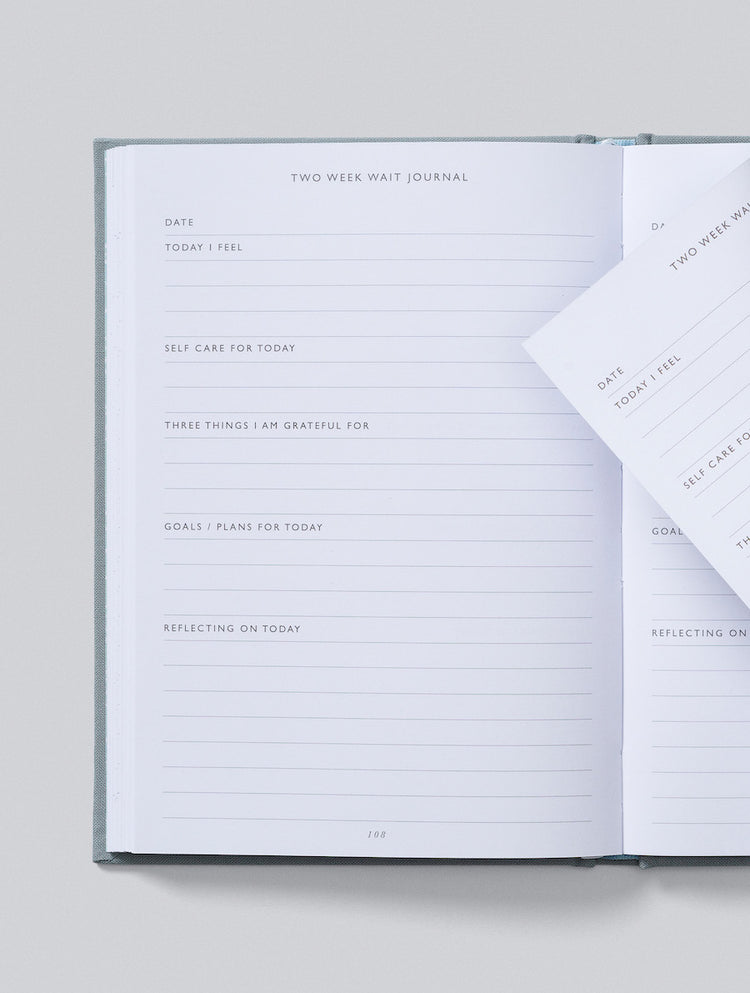 TWO WEEK WAIT JOURNAL
DATE
TODAY I FEEL
SELF CARE FOR TODAY
THREE THINGS I AM GRATEFUL FOR
GOALS / PLANS FOR TODAY
REFLECTING ON TODAY
108
TWO WEEK
DATE
TODAY I FEEL
SELF CARE
REFLECTING ON